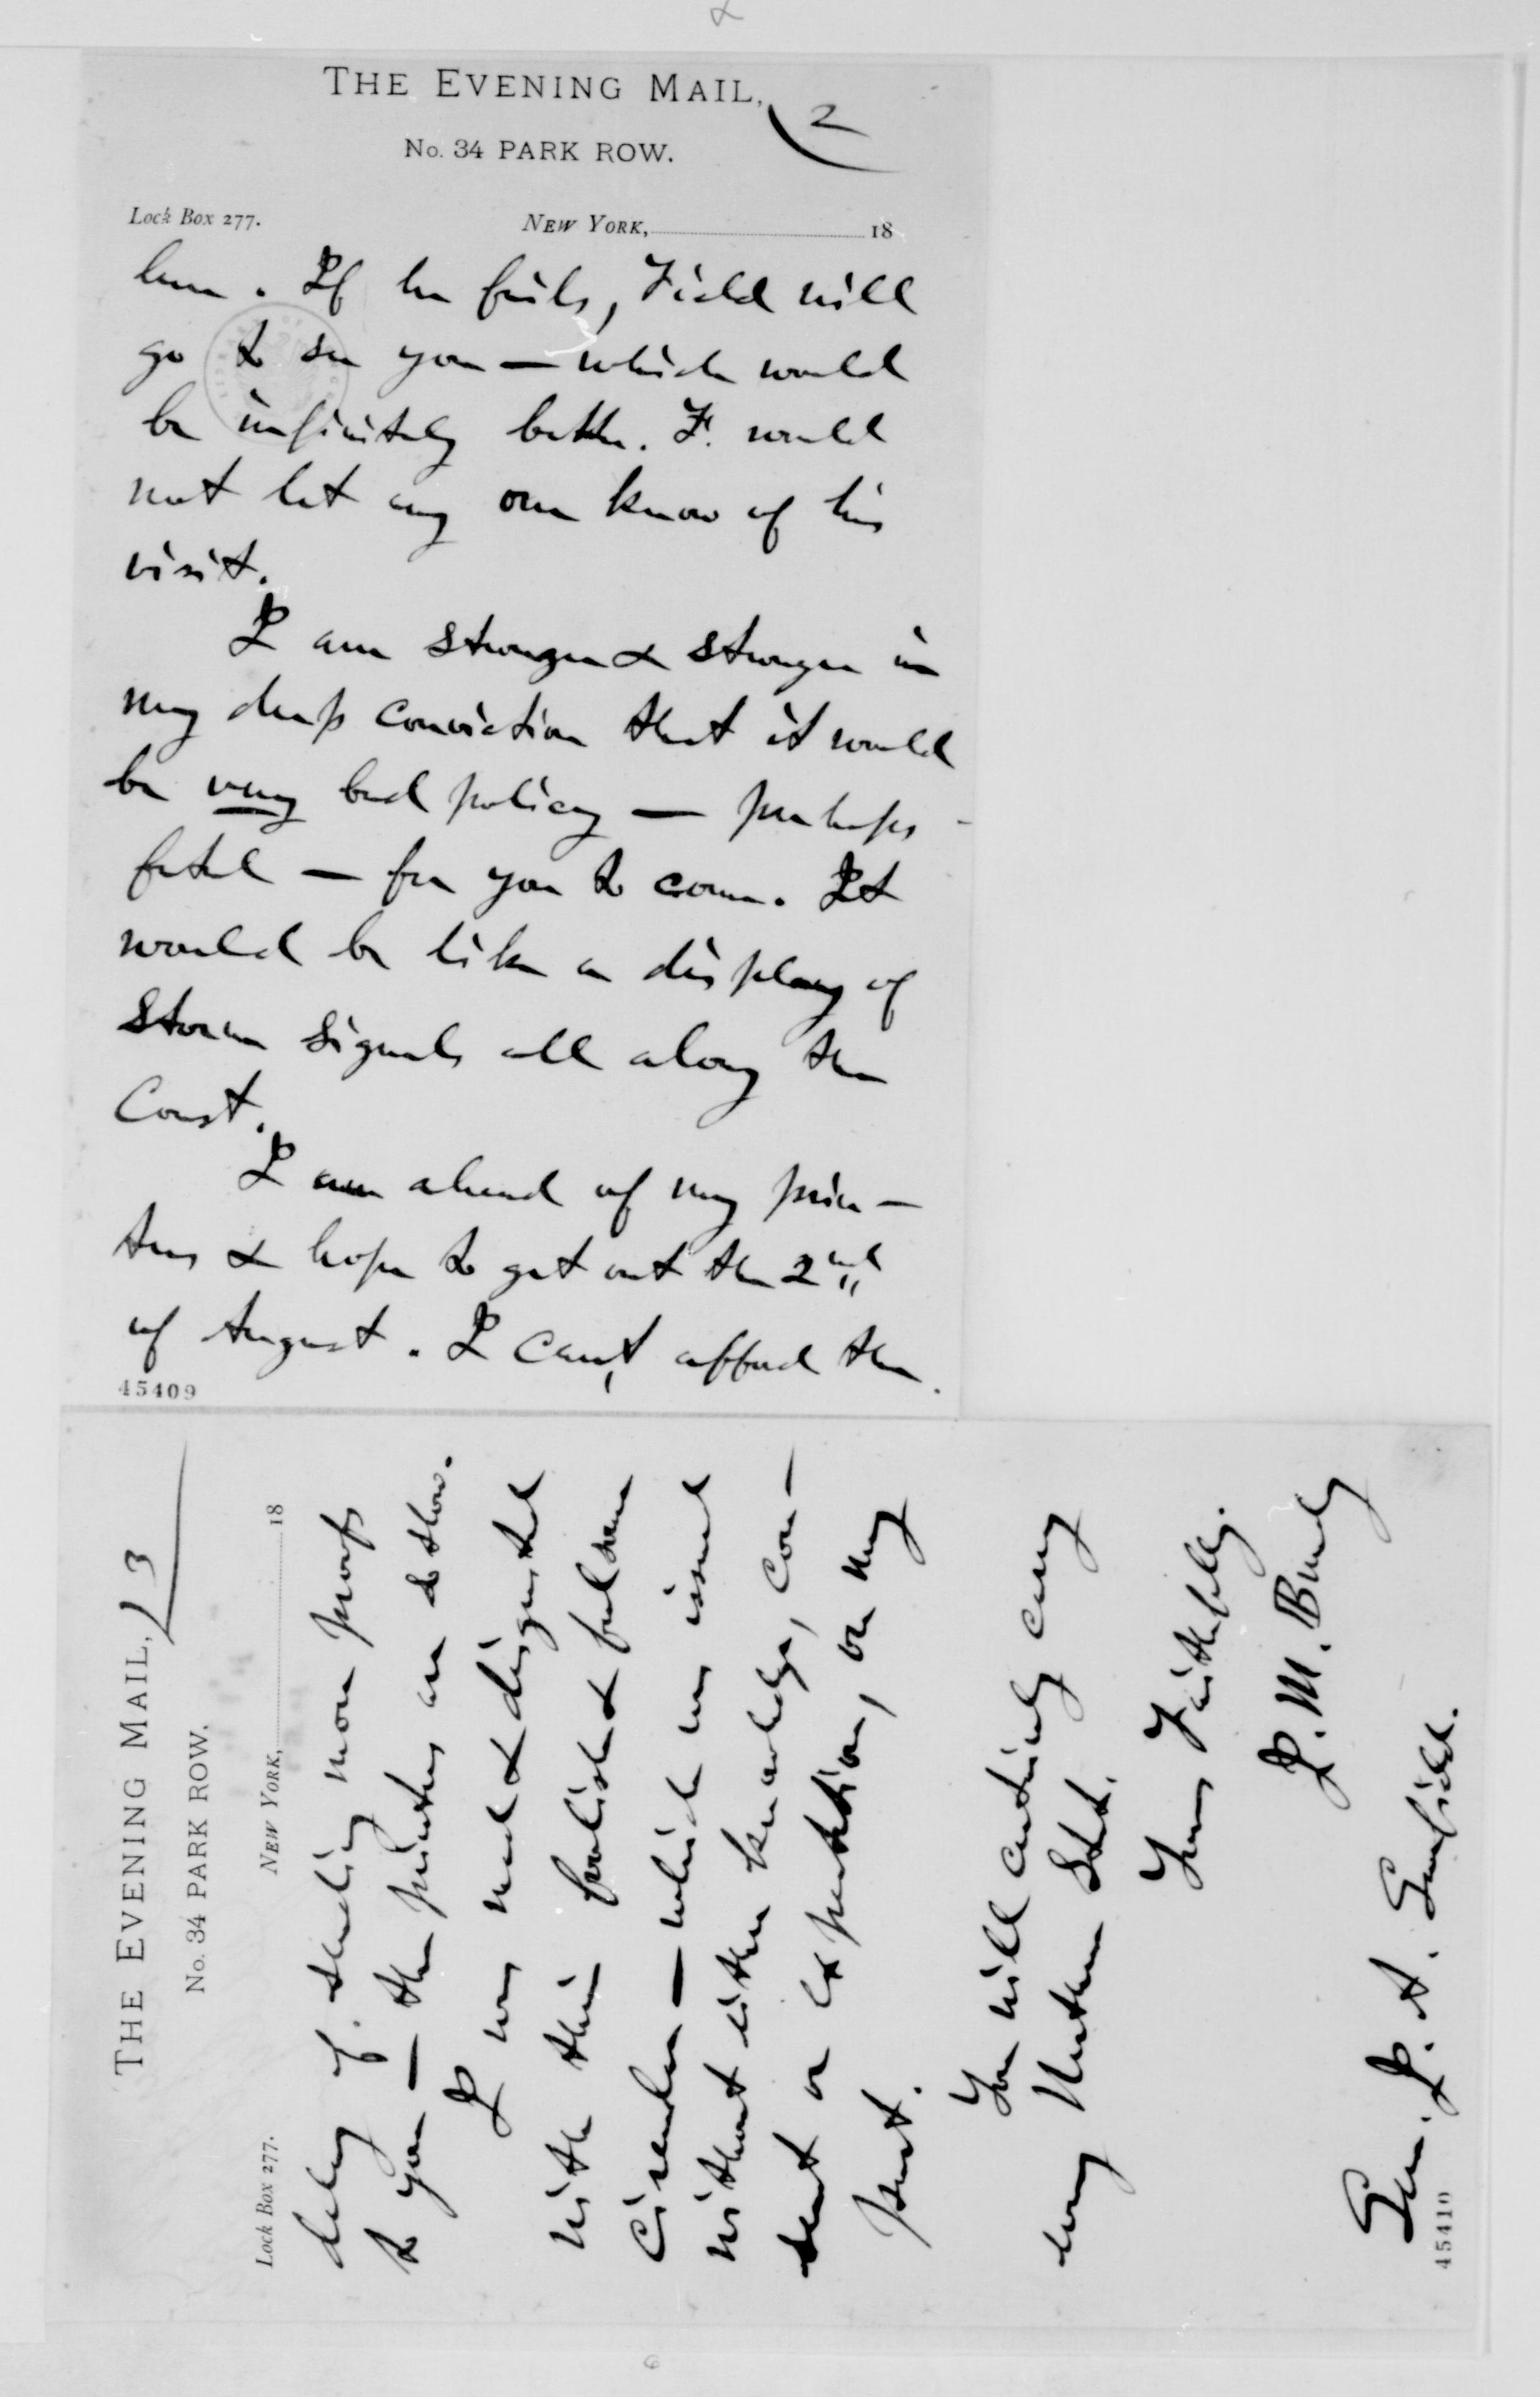 THE EVENING MAIL,
2
No. 34 PARK ROW.
Lock Box 277.
NEW YORK, 18
him. If he fails, Field will
go to see you — which would
be infinitely better. F. would
not let any one know of his
visit.
I am stronger & stronger in
my deep conviction that it would
be very bad policy — perhaps
fatal — for you to come. It
would be like a display of
storm signals all along the
Coast.
I am ahead of my prin-
ters & hope to get out the 2nd
of August. I can't afford the
45409
THE EVENING MAIL,
3
No. 34 PARK ROW.
Lock Box 277.
NEW YORK, 18
delay of sending more proofs
to you — the printers are so slow.
I was mad & disgusted
with their foolish & fulsome
Circular — which was issued
without either knowledge, con-
sent or expectation, on my
part.
You will certainly carry
every Northern State.
Yours Faithfully,
J. M. Bundy
Gen. J. A. Garfield.
45410